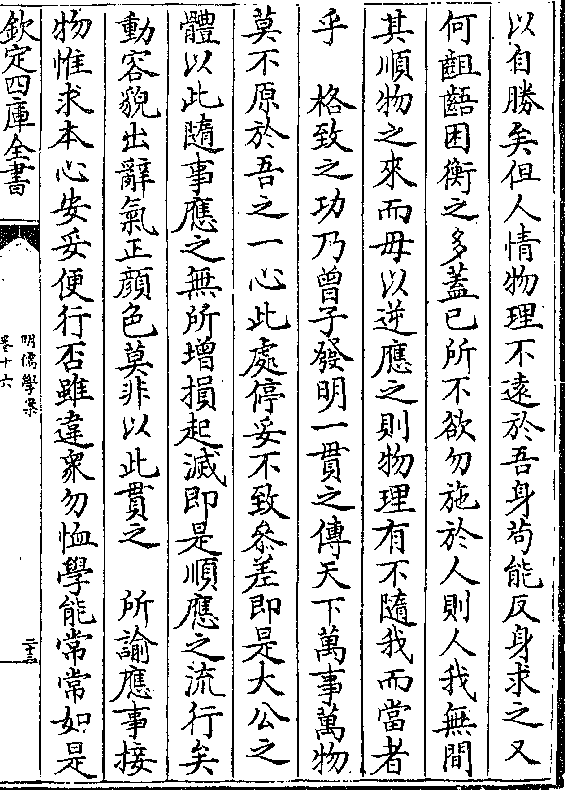 以自勝矣但人情物理不遠於吾身苟能反身求之又
何齟齬困衡之多蓋已所不欲勿施於人則人我無間
其順物之來而毋以逆應之則物理有不隨我而當者
乎　格致之功乃曾子發明一貫之傳天下萬事萬物
莫不原於吾之一心此處停妥不致叅差即是大公之
體以此隨事應之無所增損起滅即是順應之流行矣
動容貌出辭氣正顔色莫非以此貫之　所諭應事接
物惟求本心安妥便行否雖違衆勿恤學能常常如是
欽定四庫全書
明儒學案
卷十六
二十三